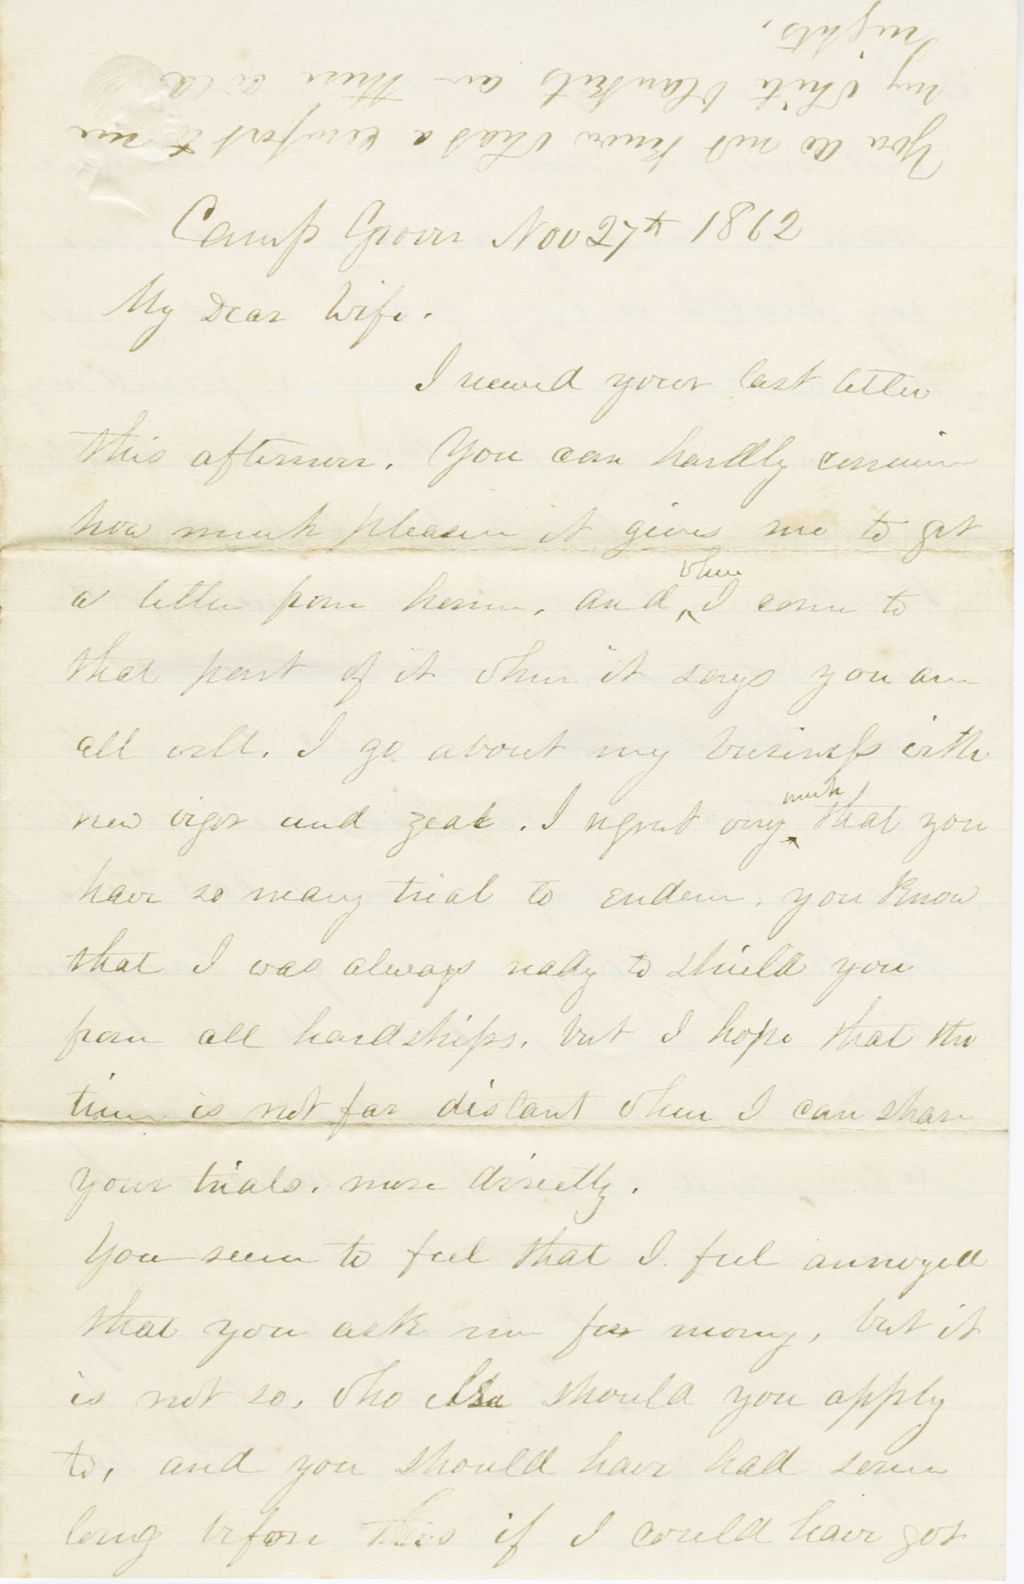 You do not know what a comfort to me
my white blankets are these cold
nights.
Camp Grover Nov 27th 1862
My Dear Wife.
I received your last letter
this afternoon. You can hardly conceive
how much pleasure it gives me to get
a letter from home, and when I come to
that part of it when it says you are
all well. I go about my business with
new vigor and zeal. I regret very much that you
have so many trial to endure. you know
that I was always ready to shield you
from all hardships. but I hope that the
time is not far distant when I can share
your trials. more directly.
You seem to feel that I feel annoyed
that you ask me for money, but it
is not so, who else should you apply
to, and you should have had some
long before this if I could have got